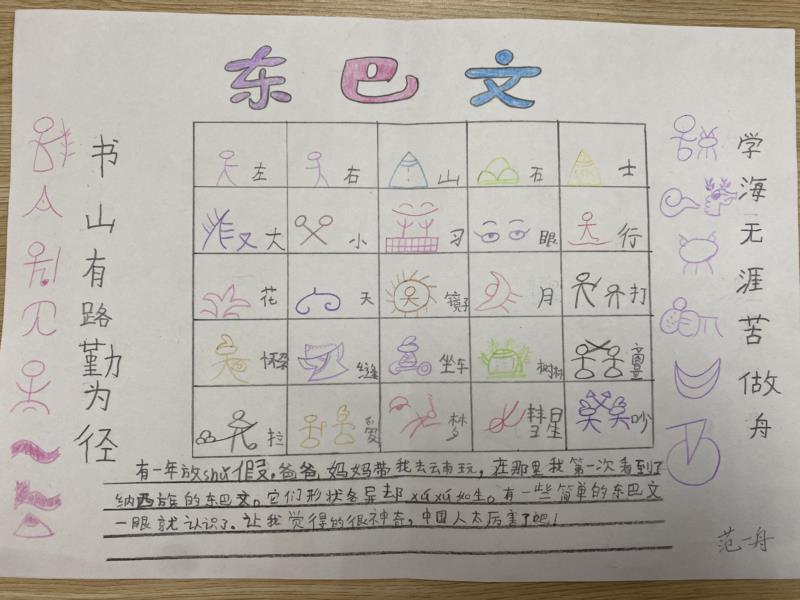 东巴文
书山有路勤为径
左 右 山 石 士
大 小 习 眼 行
花 天 镜子 月 打
怀孕 缝 坐车 树林
拉 爱 梦 彗星 吵
学海无涯苦做舟
有一年放shǔ假,爸爸、妈妈带我去云南玩,在那里我第一次看到了
纳西族的东巴文。它们形状各异却xǔ xǔ如生。有一些简单的东巴文
一眼就认识了。让我觉得的很神奇,中国人太厉害了吧!
范一舟